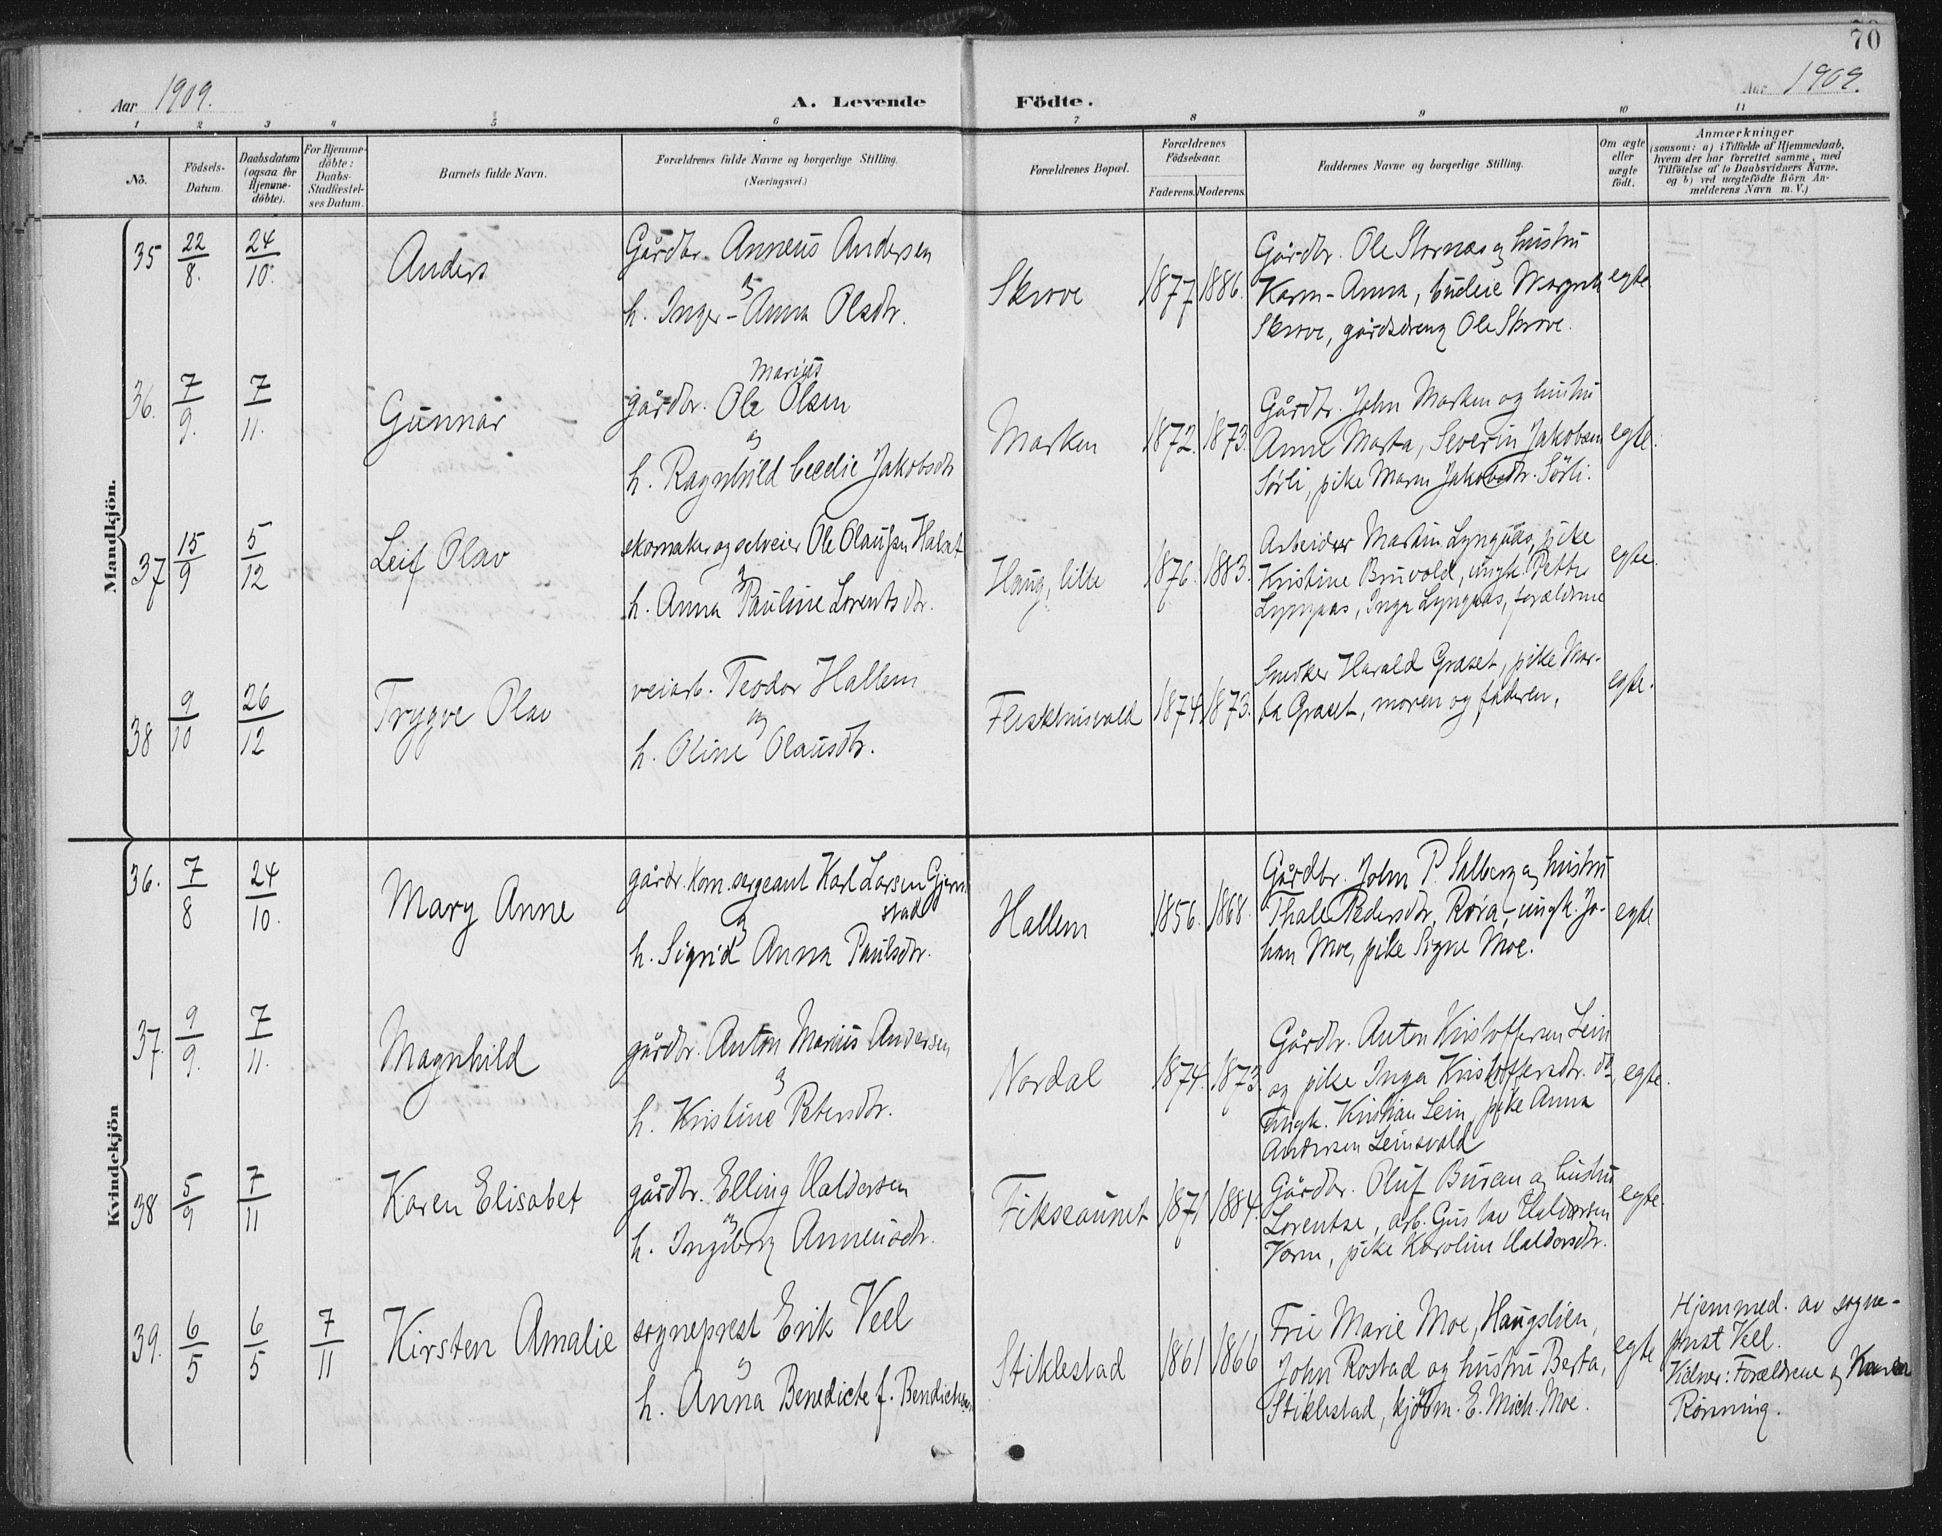 70
Aar 1909.
A. Levende Födte.
Aar 1909.
1 2 3 4 5 6 7 8 9 10 11
No.
Födsels-
Datum.
Daabsdatum
(ogsaa for
Hjemme-
döbte).
For Hjemme-
döbte:
Daabs-
Stadfæstel-
ses Datum.
Barnets fulde Navn.
Forældrenes fulde Navne og borgerlige Stilling.
(Næringsvei.)
Forældrenes Bopæl.
Forældrenes
Födselsaar.
Faderens. Moderens.
Faddernes Navne og borgerlige Stilling.
Om ægte
eller
uægte
födt.
Anmærkninger
(saasom: a) i Tilfælde af Hjemmedaab,
hvem der har forrettet samme, med
Tilföielse af to Daabsvidners Navne,
og b) ved uægtefödte Börn An-
melderens Navn m. V.)
Mandkjön.
35 22/8. 24/10.
Anders
Gårdbr. Anneus Andersen
og
h. Inger-Anna Olsdtr.
Skrove
1877 1886.
Gårdbr. Ole Stornæs og hustru
Karen-Anna, budeie
Skrove, gårdsdreng Ole Skrove.
egte
36. 7/9. 7/11.
Gunnar
Marius
gårdbr. Ole Olsen
og
h. Ragnhild Jakobsdtr
Marken
1872. 1873.
Gårdbr. John Marken og hustru
Anne Marta, Severin Jakobsen
Sörli, pike Maren Jakobsdtr. Sörli.
egte.
37 15/9 5/12
Leif Olav
skomaker og selveier Ole Olaussen
og
h. Anna Pauline Lorentsdtr.
Haug, lille
1876. 1883.
Arbeider Martin Lyngaas, pike
Kristine Bruvold, ungk. Petter
Lyngaas, Inga Lyngaas, forældrene
egte.
38 9/10 26/12
Trygve Olav
veiarb. Teodor Hallem
og
h. Oline Olausdtr.
1874. 1873.
Snedker Harald Graset, pike Mar-
ta Graset, moren og faderen.
egte.
Kvindekjön
36. 7/8 24/10.
Mary Anne
gårdbr. kom. sergeant Karl Larsen Gjern
stad
og
h. Sigrid Anna Paulsdtr.
Hallem
1856. 1868.
Gårdbr. John P. Salberg og hustru
Thale Pedersdtr, Röra, ungk. Jo-
han Moe, pike Signe Moe.
egte
37. 9/9. 7/11.
Magnhild
gårdbr. Anton Marius Andersen
og
h. Kristine Petersdtr.
Nordal
1874. 1873.
Gårdbr. Anton Kristoffersen Lein
og pike Inga Kristoffersdtr. do,
ungk. Kristian Lein, pike Anna
Andersen Leinsvald
egte.
38 5/9 7/11
Karen Elisabet
gårdbr. Elling Haldorsen
og
h. Ingeborg Anneusdtr.
Fikseaunet
1871 1884.
Gårdbr. Oluf Buran og hustru
Lorentse, arb. Gustav Haldorsen
pike Karoline Haldorsdtr.
egte.
39. 6/5 6/5 7/11
Kirsten Amalie
sogneprest Erik Veel
og
h. Anna Benedicte f. Bendictsen
Stiklestad
1861 1866
Fru Marie Moe, Haugslien,
John Rostad og hustru Berta,
Stiklestad, kjöbm. E. Mich. Moe.
egte
Hjemmed. av sogne-
prest Veel.
Vidner: Forældrene og Karen
Rönning.